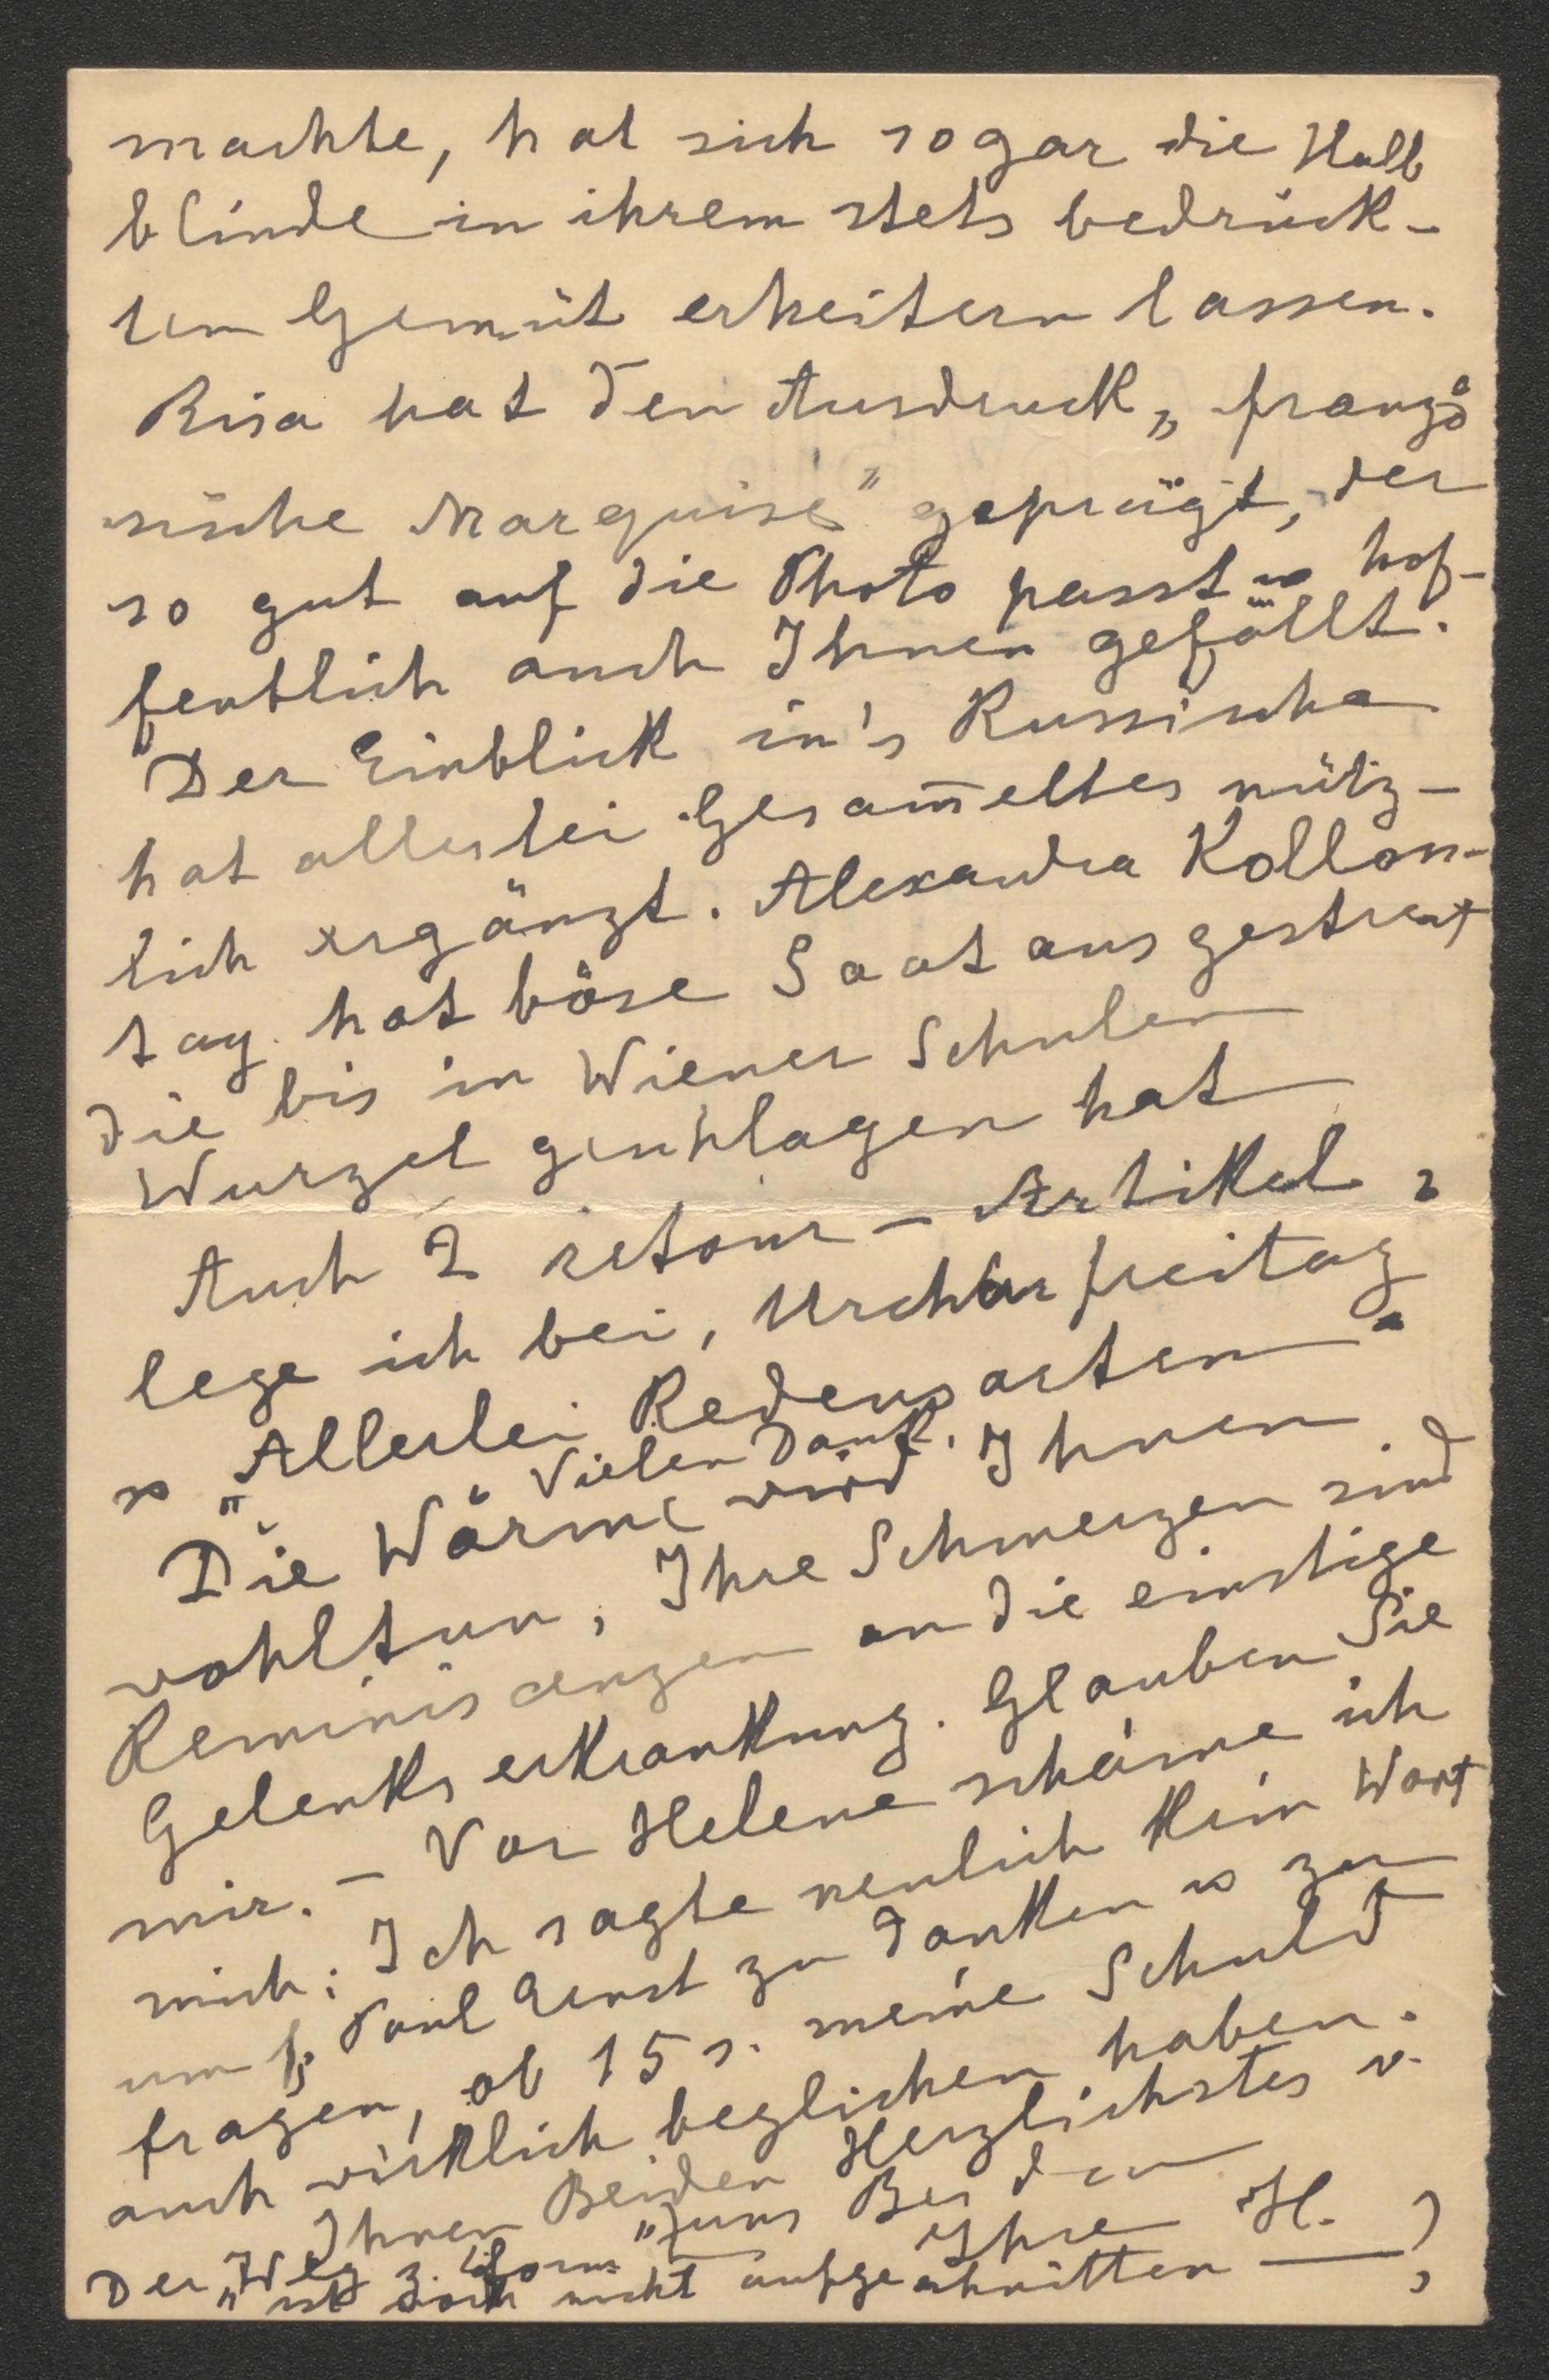 machte, hat sich sogar die Halb
blinde in ihrem stets bedrück-
ten Gemüt erheitern lassen.
Risa hat den Ausdruck „franzö
sische Marquise" geprägt, der
so gut auf die Photo passt u hof-
fentlich auch Ihnen gefällt.
Der Einblick in's Russische
hat allerlei Gesam̅eltes nütz-
lich ergänzt. Alexandra Kollon-
tay hat böse Saat ausgestreut
die bis in Wiener Schulen
Wurzel geschlagen hat
Auch 2 retour - Artikel
lege ich bei, Urcharfreitag
u „Allerlei Redensarten"
Vielen Dank.
Die Wärme wird Ihnen
wohltun, Ihre Schmerzen sind
Reminiscenzen an die einstige
Gelenkserkrankung. Glauben Sie
mir. - Vor Helene schäme ich
mich: Ich sagte neulich kein Wort
um f. Paul Ernst zu danken u zu
fragen, ob 15 s. meine Schuld
auch wirklich beglichen haben.
Ihnen Beiden Herzlichstes v.
uns Beiden
Ihre H.
Der „Weg z. Form"
ist noch nicht aufgeschnitten